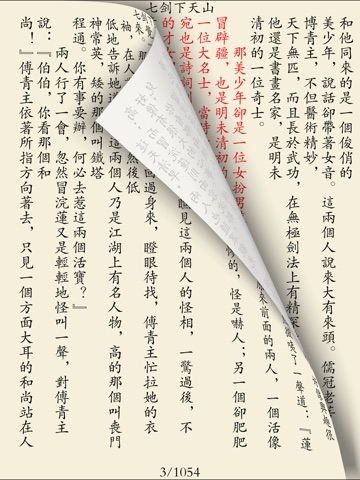 七剑下天山
和他同來的是一個俊俏的
美少年，說話卻帶著女音。這兩個人說來大有來頭。儒冠老
博青主，不但醫術精妙，
天下無匹，而且長於武功，在無極劍法上有精深
他還是書畫名家，是明末
清初的一位奇士。
那美少年卻是一位女扮男
冒辟疆，也是明末清初的
一位大名士，當時
宛也是詩詞
的才女
來前面的兩人，一個活像
慘的，怪是嚇人；另一個卻肥肥
瞧見這兩個人的怪相，一驚過後，不
回過身來，瞪眼待找，傅青主忙拉她的衣
袖，在人
然後低
低地告訴她道
這兩個人乃是江湖上有名人物，高的那個叫喪門
神常英，矮的那個叫鐵塔
程通。你有事要辦，何必去惹這兩個活寶？』
兩人行了一會，忽然冒浣蓮又是輕輕地怪叫一聲，對傅青主
說：『伯伯，你看那個和
尚！』傅青主依著所指方向著去，只見一個方面大耳的和尚站在人
3/1054